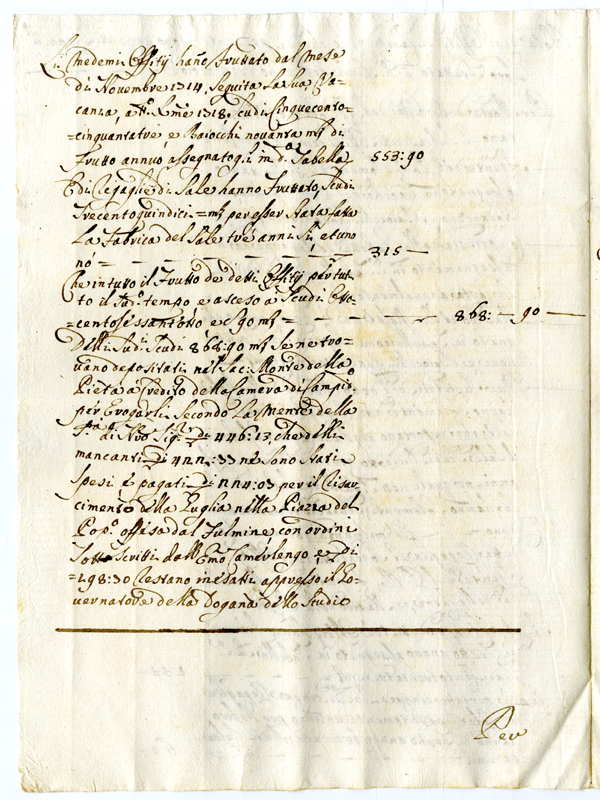 Li medemi Offitij hano fruttato dal mese
di Novembre 1714 seguita la sua Va-
canza, a tt.o xmre 1718. scudi Cinquecento-
=cinquantatre, e Baiocchi novanta mta di
frutto annuo assegnatogli in d.a Tabella 553:90
E di Regaglie di Sale hanno fruttato, scudi
Trecentoquindici =mta per esser stata fatta
La fabrica del Sale tre anni si, et uno
nò = 315
Che in tutto il frutto de detti Offitij per tut-
to il sud.o tempo è asceso à scudi Otto-
=centosessantotto e 90 mta = 868: 90
Delli sud.i scudi 868:90 mta se ne tro-
vano depositati nel sac: Monte della
Pietà à Credito della Camera di Campid.o
per Erogarli secondo la Mente della
S.tà di N'ro Sig.re 446:13, che delli
mancanti 422:77 ne sono stati
spesi è pagati 224:03 per il Risar-
cimento della Guglia nella Piazza del
Pop.o offesa dal fulmine con ordini
sottoscritti dall'Em.o Camerlengo, e
=198:30 restano intatti appresso il Go-
vernatore della Dogana dello Studio
Per